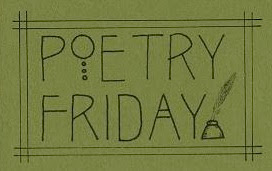 POETRY
FRIDAY